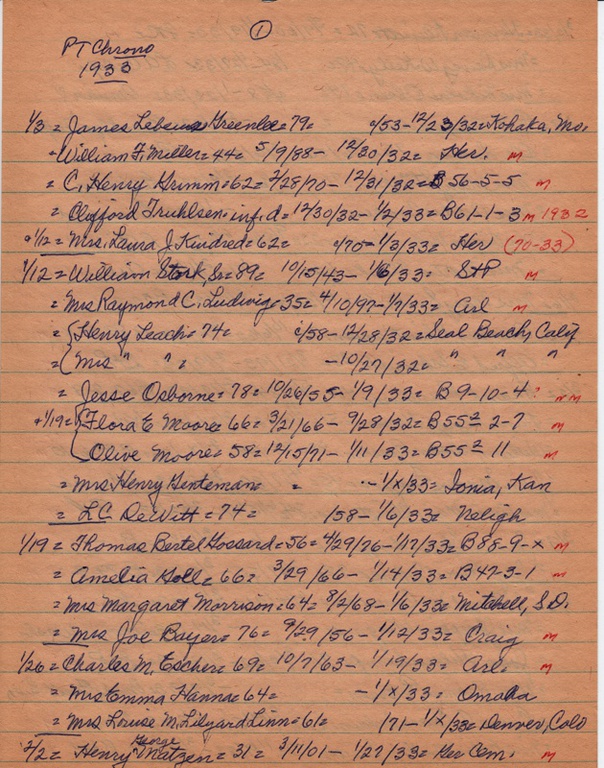 ①
PT Chrono
1933
1/3 = James Lebeus Greenlee = 79 = c/53 - 12/23/32 = Kohaka, Mo.
= William F. Miller = 44 = 5/9/88 - 12/30/32 = Her. m
= C. Henry Grimm = 62 = 2/28/70 - 12/31/32 = B 56-5-5 m
= Clifford Truhlsen = inf. d = 12/30/32 - 1/2/33 = B61-1-3 m 1932
+1/12 = Mrs. Laura J. Kindred = 62 = c/70 - 1/3/33 = Her (70-33)
1/12 = William Stork, Sr = 89 = 10/15/43 - 1/6/33 = StP m
= Mrs Raymond C. Ludwig = 35 = 4/10/97 - 1/7/33 = Arl m
= { Henry Leach = 74 = c/58 - 12/28/32 = Seal Beach, Calif
= ( Mrs " " = - 10/27/32 = " " "
= Jesse Osborne = 78 = 10/26/55 - 1/9/33 = B 9-10-4 ? nm
+1/19 = { Flora E Moore = 66 = 3/21/66 - 9/28/32 = B55² 2-7 m
Olive Moore = 58 = 12/15/71 - 1/11/33 = B55² 11 m
= Mrs Henry Genteman = = - 1/x/33 = Ionia, Kan
= L.C. DeWitt = 74 = /58 - 1/6/33 = Neligh
1/19 = Thomas Bertel Gossard = 56 = 4/29/76 - 1/17/33 = B88-9-x m
= Amelia Goll = 66 = 3/29/66 - 1/14/33 = B47-3-1 m
= Mrs Margaret Morrison = 64 = 8/2/68 - 1/6/33 = Mitchell, S.D.
= Mrs Joe Bayer = 76 = 9/29/56 - 1/12/33 = Craig m
1/26 = Charles M. Escher = 69 = 10/7/63 - 1/19/33 = Arl. m
= Mrs Emma Hanna = 64 = - 1/x/33 = Omaha
= Mrs Louise M. Lilyard Linn = 61 = /71 - 1/x/33 = Denver, Colo
2/2 = Henry George Matzen = 31 = 3/11/01 - 1/27/33 = Her Cem. m